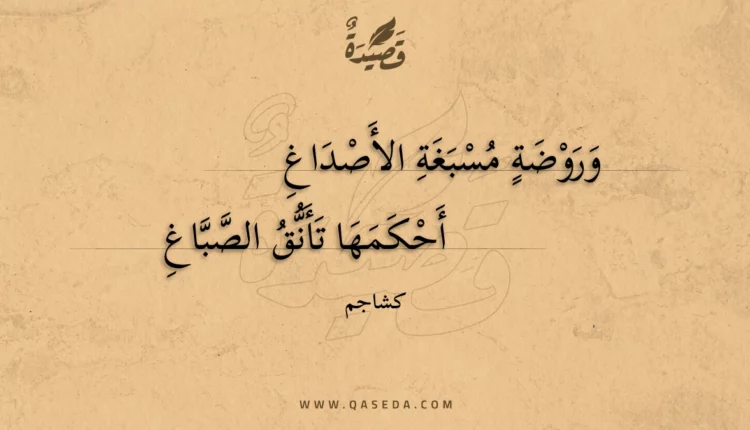 قَصِيدَةٌ
وَرَوْضَةٍ مُسْبَغَةِ الأَصْدَاغِ
أَحْكَمَهَا تَأَنُّقُ الصَّبَّاغِ
كشاجم
WWW.QASEDA.COM